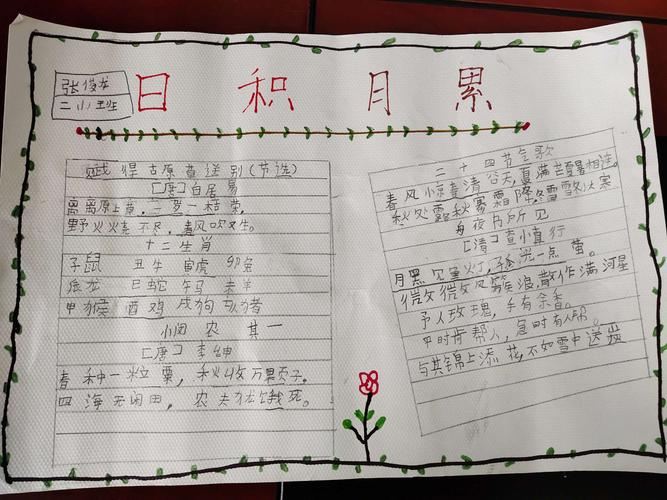 张俊龙
班
日积月累
赋得古原草送别(节选)
[唐]白居易
离离原上草,一岁一枯荣,
野火烧不尽,春风吹又生。
十二生肖
子鼠 丑牛 寅虎 卯兔
辰龙 巳蛇 午马 未羊
申猴 酉鸡 戌狗 亥猪
悯农 其一
[唐]李绅
春种一粒粟,秋收万果页子。
四海无闲田,农夫犹饿死。
二十四节气歌
春风惊春清谷天,夏满芒夏暑相连。
秋处露秋寒霜降,冬雪雪冬小大寒
舟夜书所见
[清]查慎行
月黑见渔灯,孤光一点萤。
微微风簇浪,散作满河星
予人玫瑰,手有余香。
平时肯帮人,急时有人帮。
与其锦上添花,不如雪中送炭